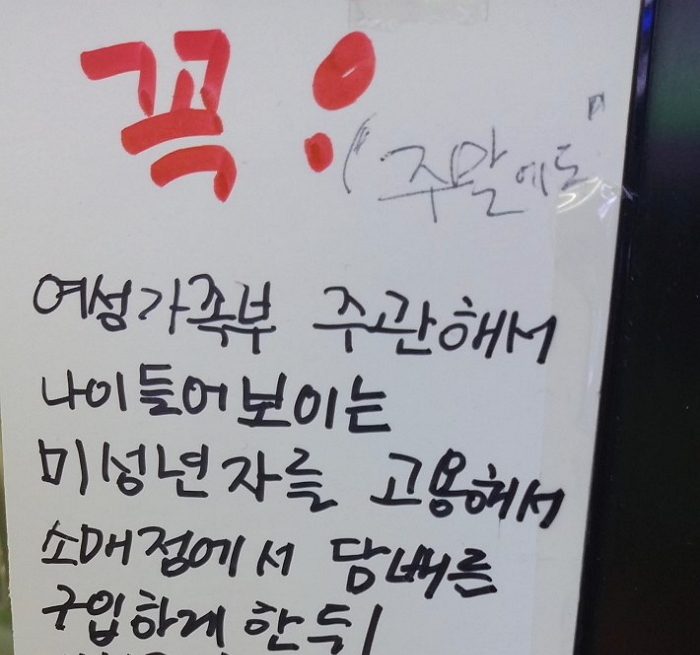 꼭! ("주말에도"
여성가족부 주관해서
나이들어보이는
미성년자를 고용해서
소매점에서 담배를
구입하게 한 뒤